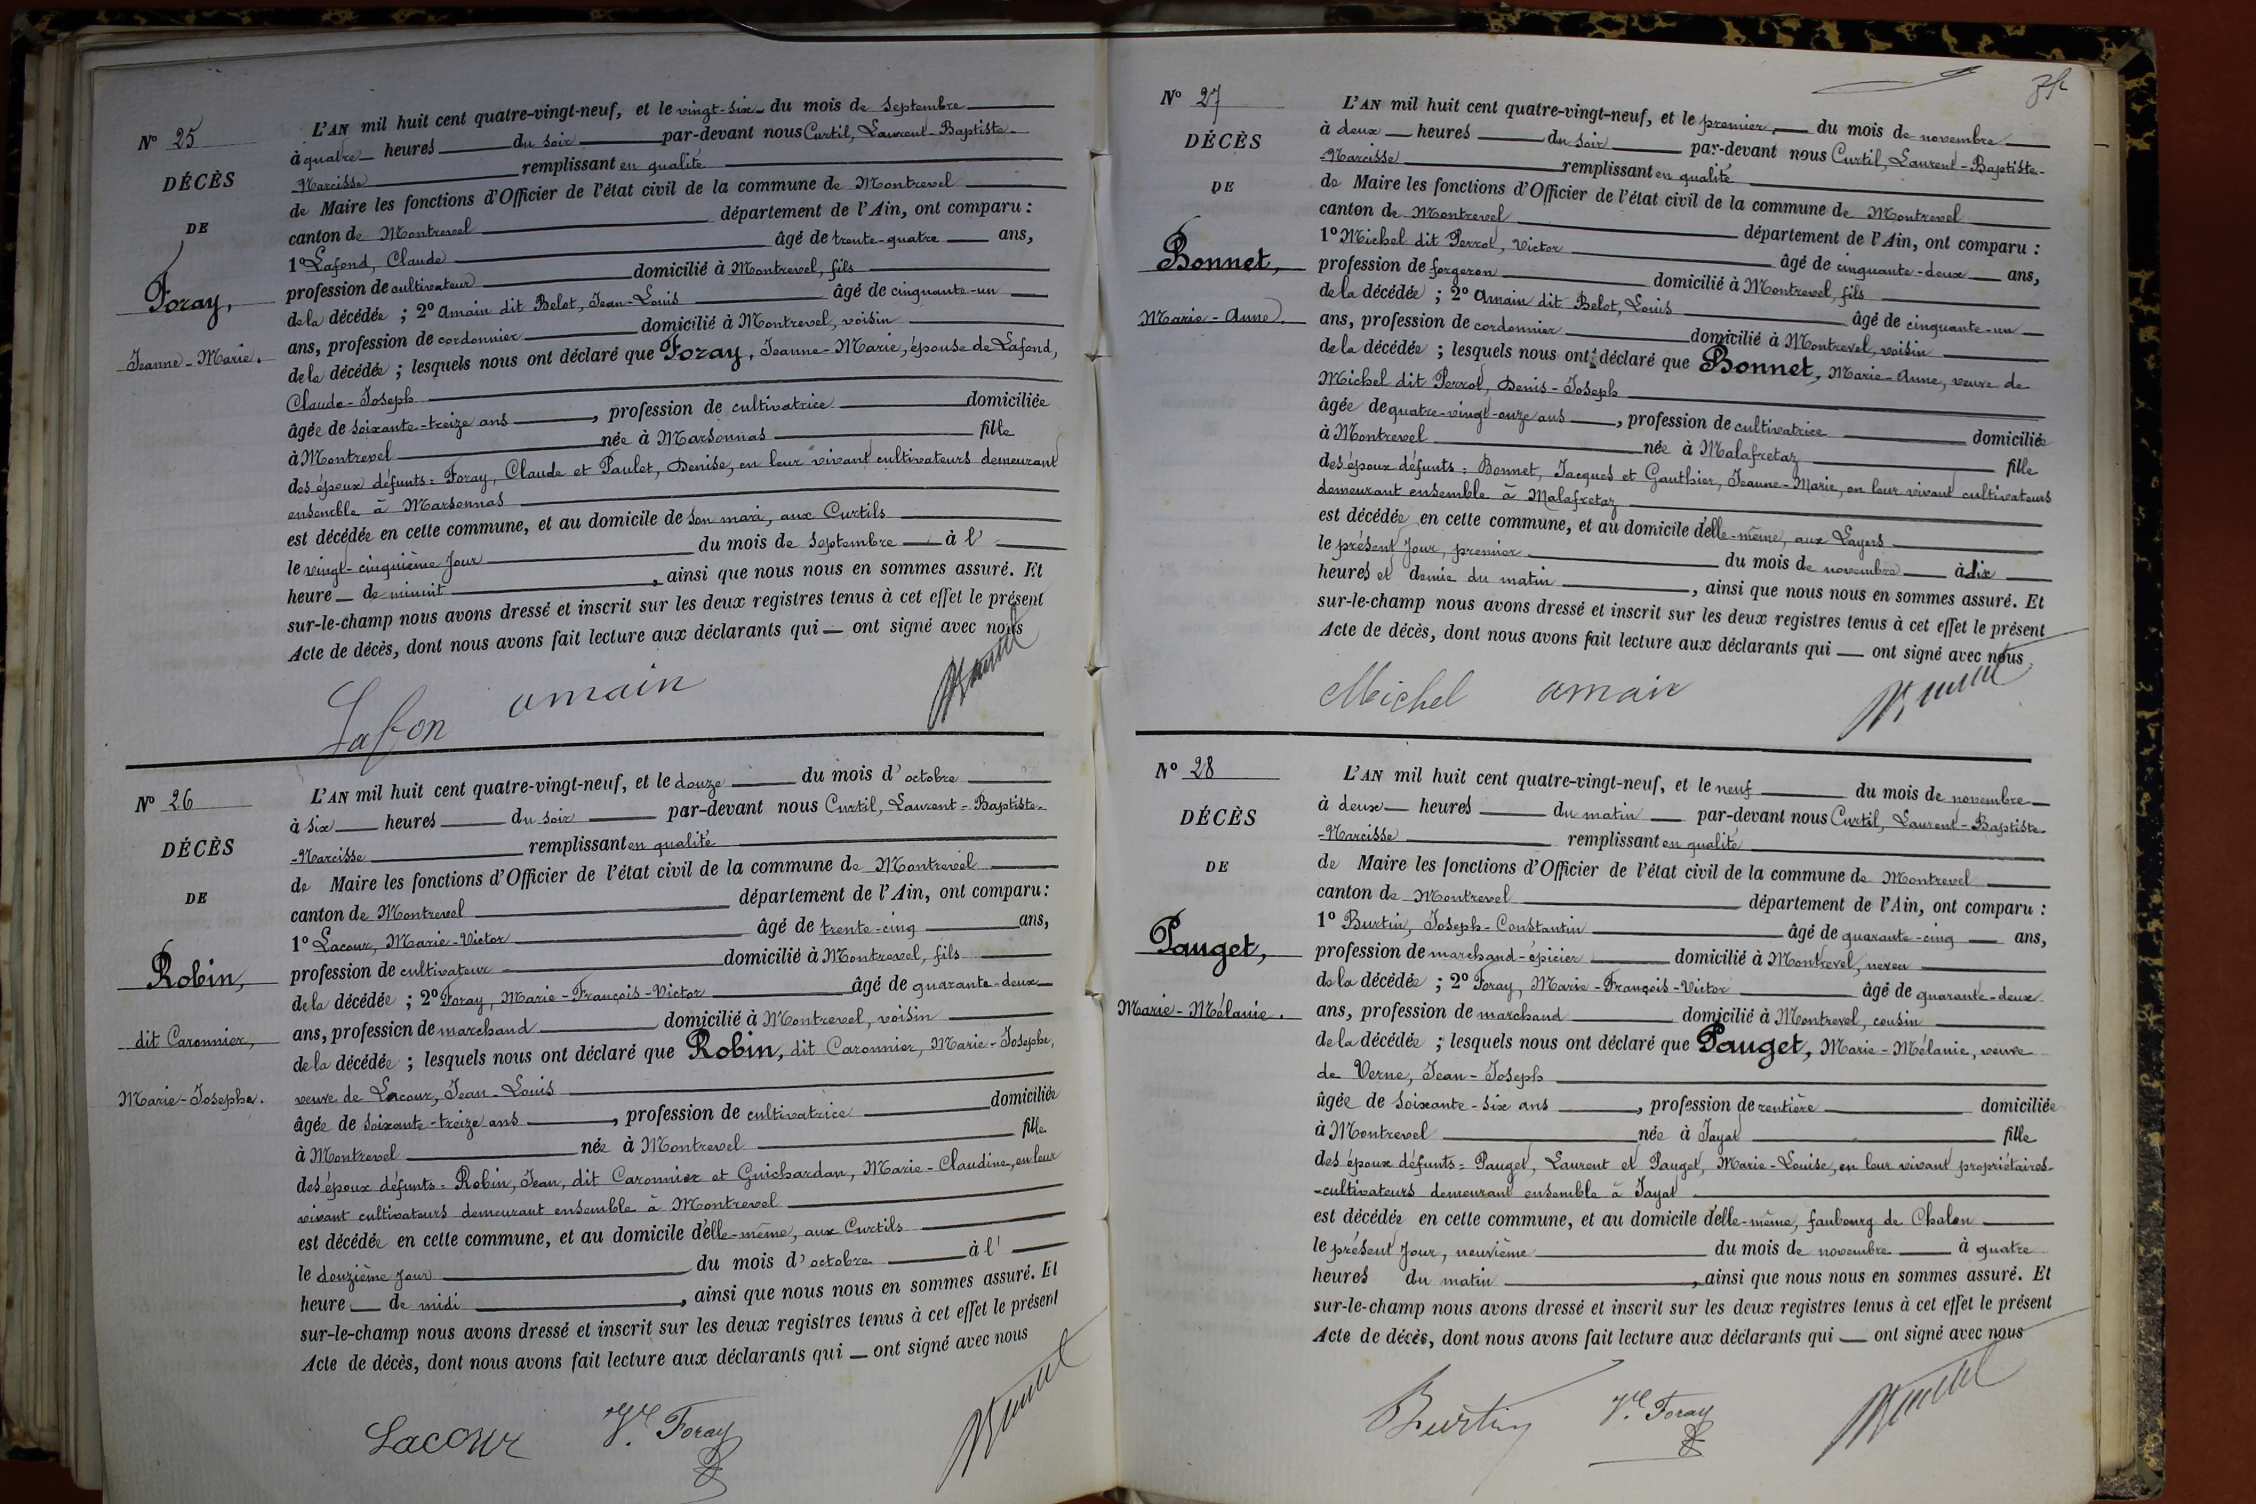 Nº 25
DÉCÈS
DE
Foray,
Jeanne-Marie.
L'AN mil huit cent quatre-vingt-neuf, et le vingt-six du mois de septembre
à quatre heures du soir par-devant nous Curtil, Laurent-Baptiste-
Narcisse remplissant en qualité
de Maire les fonctions d'Officier de l'état civil de la commune de Montrevel
canton de Montrevel département de l'Ain, ont comparu :
1º Lafond, Claude âgé de trente-quatre ans,
profession de cultivateur domicilié à Montrevel, fils
de la décédée ; 2º Amain dit Belot, Jean-Louis âgé de cinquante-un
ans, profession de cordonnier domicilié à Montrevel, voisin
de la décédée ; lesquels nous ont déclaré que Foray, Jeanne-Marie, épouse de Lafond,
Claude-Joseph
âgée de soixante-treize ans, profession de cultivatrice domiciliée
à Montrevel née à Marsonnas fille
des époux défunts : Foray, Claude et Paulet, Denise, en leur vivant cultivateurs demeurant
ensemble à Marsonnas
est décédée en cette commune, et au domicile de son mari, aux Curtils
le vingt-cinquième jour du mois de septembre à l'
heure de minuit, ainsi que nous nous en sommes assuré. Et
sur-le-champ nous avons dressé et inscrit sur les deux registres tenus à cet effet le présent
Acte de décès, dont nous avons fait lecture aux déclarants qui ont signé avec nous
Lafon amain
Nº 26
DÉCÈS
DE
Robin,
dit Caronnier,
Marie-Josephe.
L'AN mil huit cent quatre-vingt-neuf, et le douze du mois d'octobre
à six heures du soir par-devant nous Curtil, Laurent-Baptiste-
-Narcisse remplissant en qualité
de Maire les fonctions d'Officier de l'état civil de la commune de Montrevel
canton de Montrevel département de l'Ain, ont comparu :
1º Lacour, Marie-Victor âgé de trente-cinq ans,
profession de cultivateur domicilié à Montrevel, fils
de la décédée ; 2º Foray, Marie-François-Victor âgé de quarante-deux
ans, profession de marchand domicilié à Montrevel, voisin
de la décédée ; lesquels nous ont déclaré que Robin, dit Caronnier, Marie-Josephe,
veuve de Lacour, Jean-Louis
âgée de soixante-treize ans, profession de cultivatrice domiciliée
à Montrevel née à Montrevel fille
des époux défunts : Robin, Jean, dit Caronnier et Guichardan, Marie-Claudine, en leur
vivant cultivateurs demeurant ensemble à Montrevel
est décédée en cette commune, et au domicile d'elle-même, aux Curtils
le douzième jour du mois d'octobre à l'
heure de midi, ainsi que nous nous en sommes assuré. Et
sur-le-champ nous avons dressé et inscrit sur les deux registres tenus à cet effet le présent
Acte de décès, dont nous avons fait lecture aux déclarants qui ont signé avec nous
Lacour Vr. Foray
Nº 27
DÉCÈS
DE
Bonnet,
Marie-Anne.
L'AN mil huit cent quatre-vingt-neuf, et le premier, du mois de novembre
à deux heures du soir par-devant nous Curtil, Laurent-Baptiste-
-Narcisse remplissant en qualité
de Maire les fonctions d'Officier de l'état civil de la commune de Montrevel
canton de Montrevel département de l'Ain, ont comparu :
1º Michel dit Perrol, Victor âgé de cinquante-deux ans,
profession de forgeron domicilié à Montrevel, fils
de la décédée ; 2º Amain dit Belot, Louis âgé de cinquante-un
ans, profession de cordonnier domicilié à Montrevel, voisin
de la décédée ; lesquels nous ont déclaré que Bonnet, Marie-Anne, veuve de
Michel dit Perrol, Denis-Joseph
âgée de quatre-vingt-onze ans, profession de cultivatrice domiciliée
à Montrevel née à Malafretaz fille
des époux défunts : Bonnet, Jacques et Gauthier, Jeanne-Marie, en leur vivant cultivateurs
demeurant ensemble à Malafretaz
est décédée en cette commune, et au domicile d'elle-même, aux Layers
le présent jour, premier du mois de novembre à dix
heures et demie du matin, ainsi que nous nous en sommes assuré. Et
sur-le-champ nous avons dressé et inscrit sur les deux registres tenus à cet effet le présent
Acte de décès, dont nous avons fait lecture aux déclarants qui ont signé avec nous
Michel amain
Nº 28
DÉCÈS
DE
Pauget,
Marie-Mélanie.
L'AN mil huit cent quatre-vingt-neuf, et le neuf du mois de novembre
à deux heures du matin par-devant nous Curtil, Laurent-Baptiste-
-Narcisse remplissant en qualité
de Maire les fonctions d'Officier de l'état civil de la commune de Montrevel
canton de Montrevel département de l'Ain, ont comparu :
1º Burtin, Joseph-Constantin âgé de quarante-cinq ans,
profession de marchand-épicier domicilié à Montrevel, neveu
de la décédée ; 2º Foray, Marie-François-Victor âgé de quarante-deux
ans, profession de marchand domicilié à Montrevel, cousin
de la décédée ; lesquels nous ont déclaré que Pauget, Marie-Mélanie, veuve
de Verne, Jean-Joseph
âgée de soixante-six ans, profession de rentière domiciliée
à Montrevel née à Jayat fille
des époux défunts : Pauget, Laurent et Pauget, Marie-Louise, en leur vivant propriétaires-
-cultivateurs demeurant ensemble à Jayat
est décédée en cette commune, et au domicile d'elle-même, faubourg de Chalon
le présent jour, neuvième du mois de novembre à quatre
heures du matin, ainsi que nous nous en sommes assuré. Et
sur-le-champ nous avons dressé et inscrit sur les deux registres tenus à cet effet le présent
Acte de décès, dont nous avons fait lecture aux déclarants qui ont signé avec nous
Burtin Vr. Foray